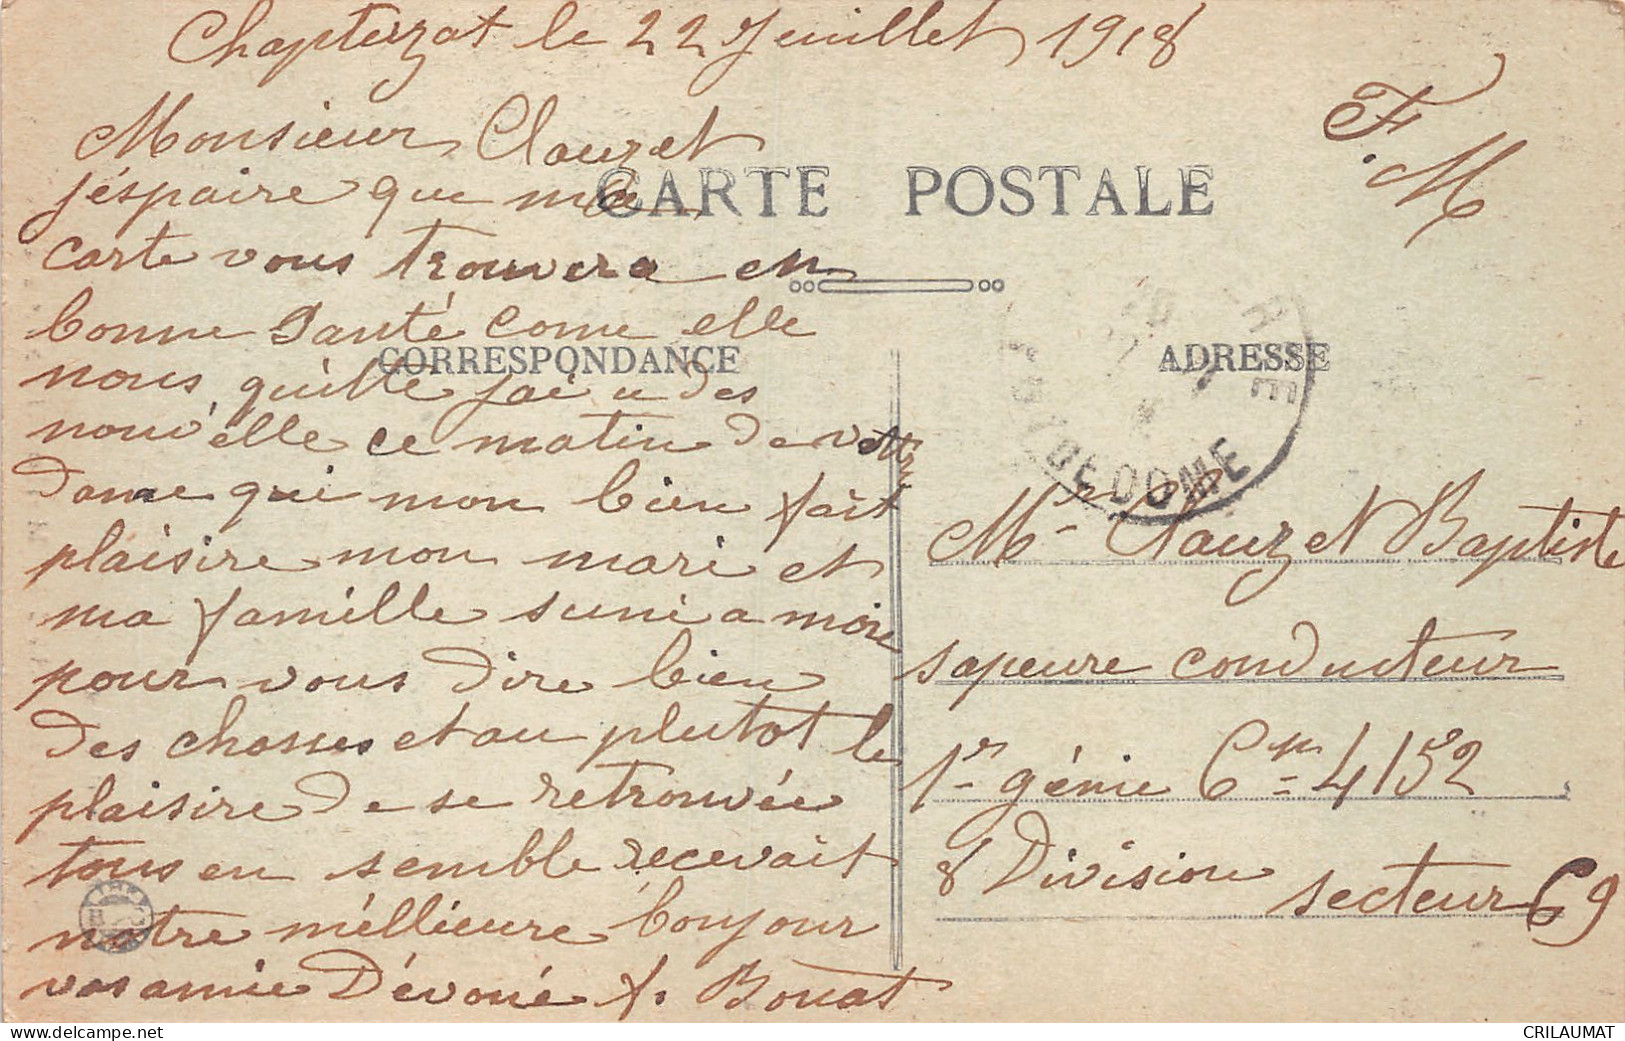 Chapteuzat le 22 Juillet 1918
Monsieur Clauzet
j'éspaire que ma
carte vous trouvera en
bonne Santé come elle
nous quitte jai u des
nouv'elle ce matin de votre
dame qui mon bien fait
plaisire mon mari et
ma famille suni a moie
pour vous dire bien
des chosses et au plutot le
plaisire de se retrouvée
tous en semble recevait
notre méllieure bonjour
vos amie Dévoué f. Bouat
CARTE POSTALE
CORRESPONDANCE
ADRESSE
F. M
PUY DE DOME
Mr Clauzet Baptiste
sapeure conducteur
1er génie Cie 4152
8 Division
secteur 69
CRILAUMAT
www.delcampe.net